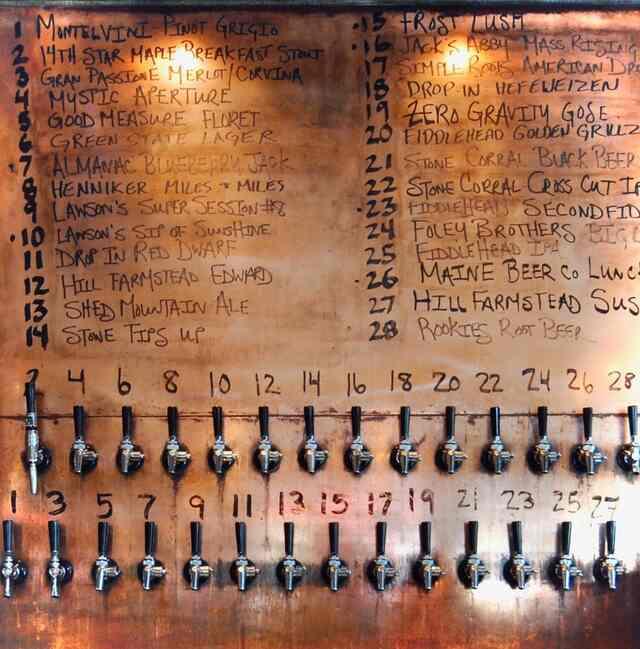 1 MONTELVINI PINOT GRIGIO
2 14TH STAR MAPLE BREAKFAST STOUT
3 GRAN PASSIONE MERLOT/CORVINA
4 MYSTIC APERTURE
5 GOOD MEASURE FLORET
6 GREEN STATE LAGER
7 ALMANAC BLUEBERRY JACK
8 HENNIKER MILES & MILES
9 LAWSON'S SUPER SESSION #8
10 LAWSON'S SIP OF SUNSHINE
11 DROP IN RED DWARF
12 HILL FARMSTEAD EDWARD
13 SHED MOUNTAIN ALE
14 STONE TIPS UP
15 FROST LUSH
16 JACK'S ABBY MASS RISING
17 SIMPLE ROOTS AMERICAN DRO
18 DROP-IN HEFEWEIZEN
19 ZERO GRAVITY GOSE
20 FIDDLEHEAD GOLDEN GRILLZ
21 STONE CORRAL BLACK BEER
22 STONE CORRAL CROSS CUT IP
23 FIDDLEHEAD SECOND FID
24 FOLEY BROTHERS BIG
25 FIDDLEHEAD IPA
26 MAINE BEER CO LUNC
27 HILL FARMSTEAD SUS
28 ROOKIES ROOT BEER
2 4 6 8 10 12 14 16 18 20 22 24 26 28
1 3 5 7 9 11 13 15 17 19 21 23 25 27